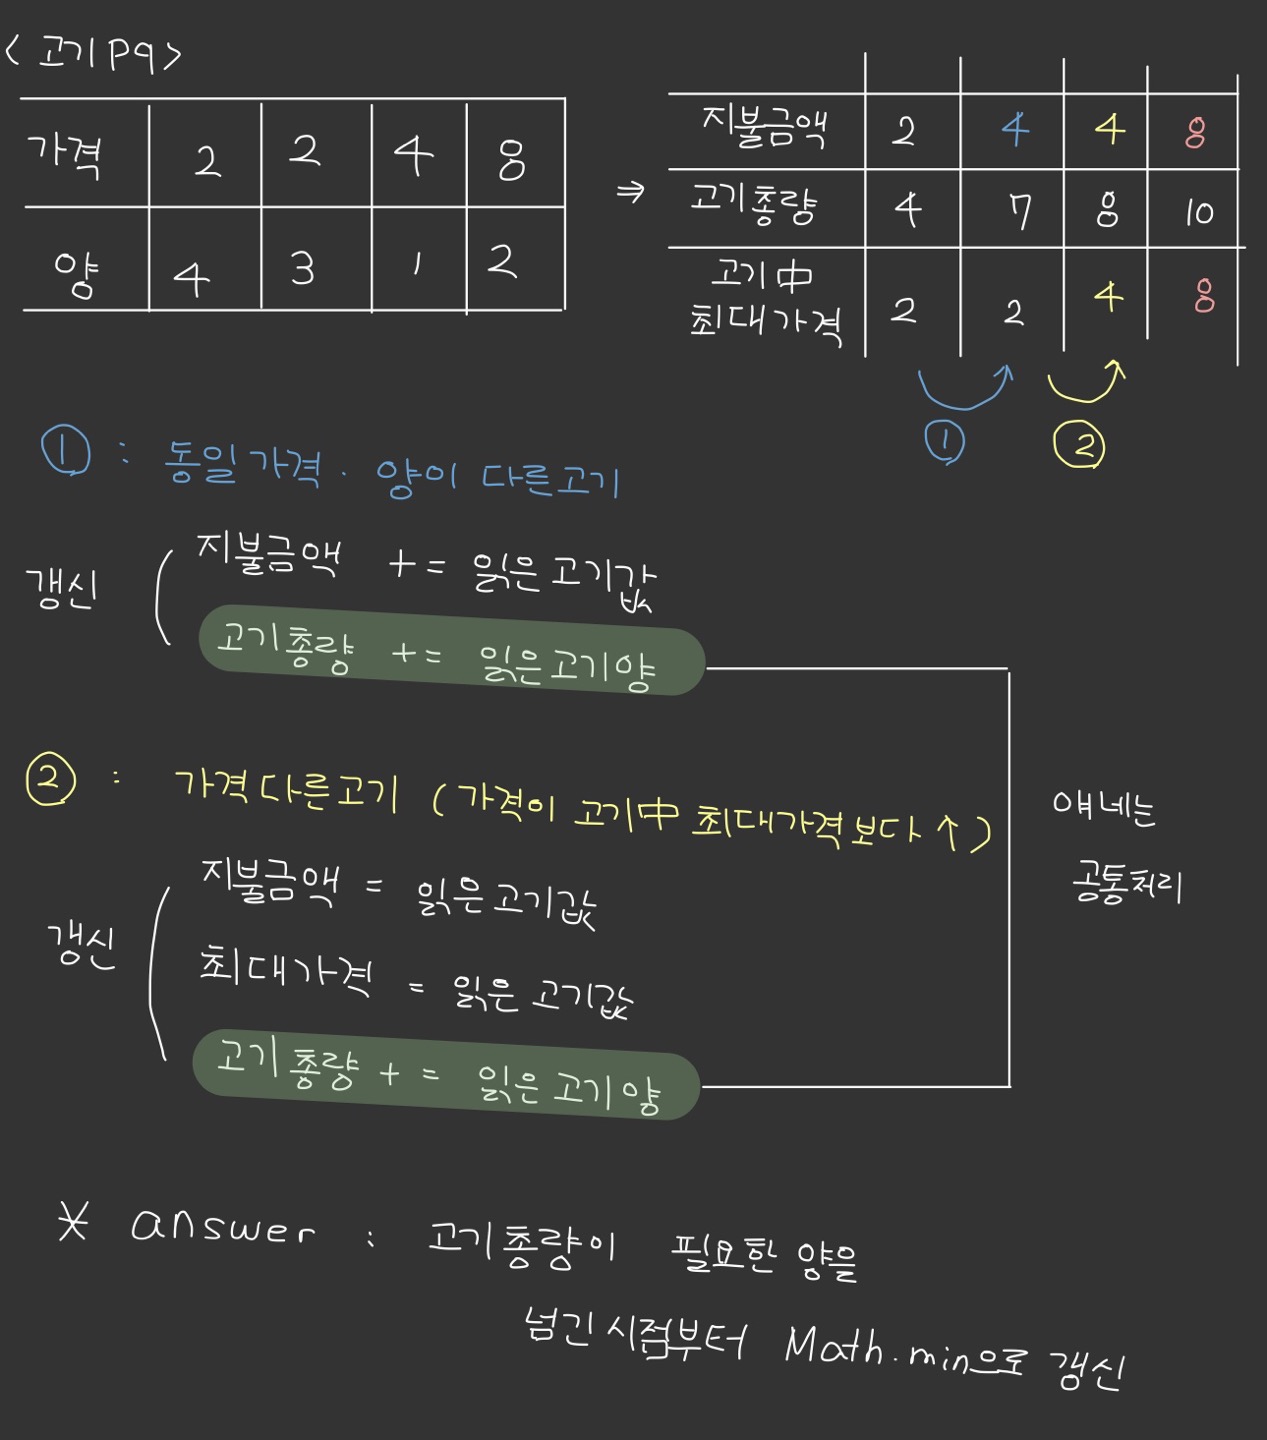 <고기Pq>
가격 2 2 4 8
양 4 3 1 2
⇒
지불금액 2 4 4 8
고기총량 4 7 8 10
고기中
최대가격 2 2 4 8
① ②
① : 동일가격. 양이 다른고기
갱신
지불금액 += 읽은고기값
고기총량 += 읽은고기양
② : 가격다른고기 (가격이 고기中 최대가격보다 ↑)
얘네는
공통처리
갱신
지불금액 = 읽은고기값
최대가격 = 읽은 고기값
고기총량 += 읽은 고기양
* answer : 고기총량이 필요한 양을
넘긴시점부터 Math.min으로 갱신